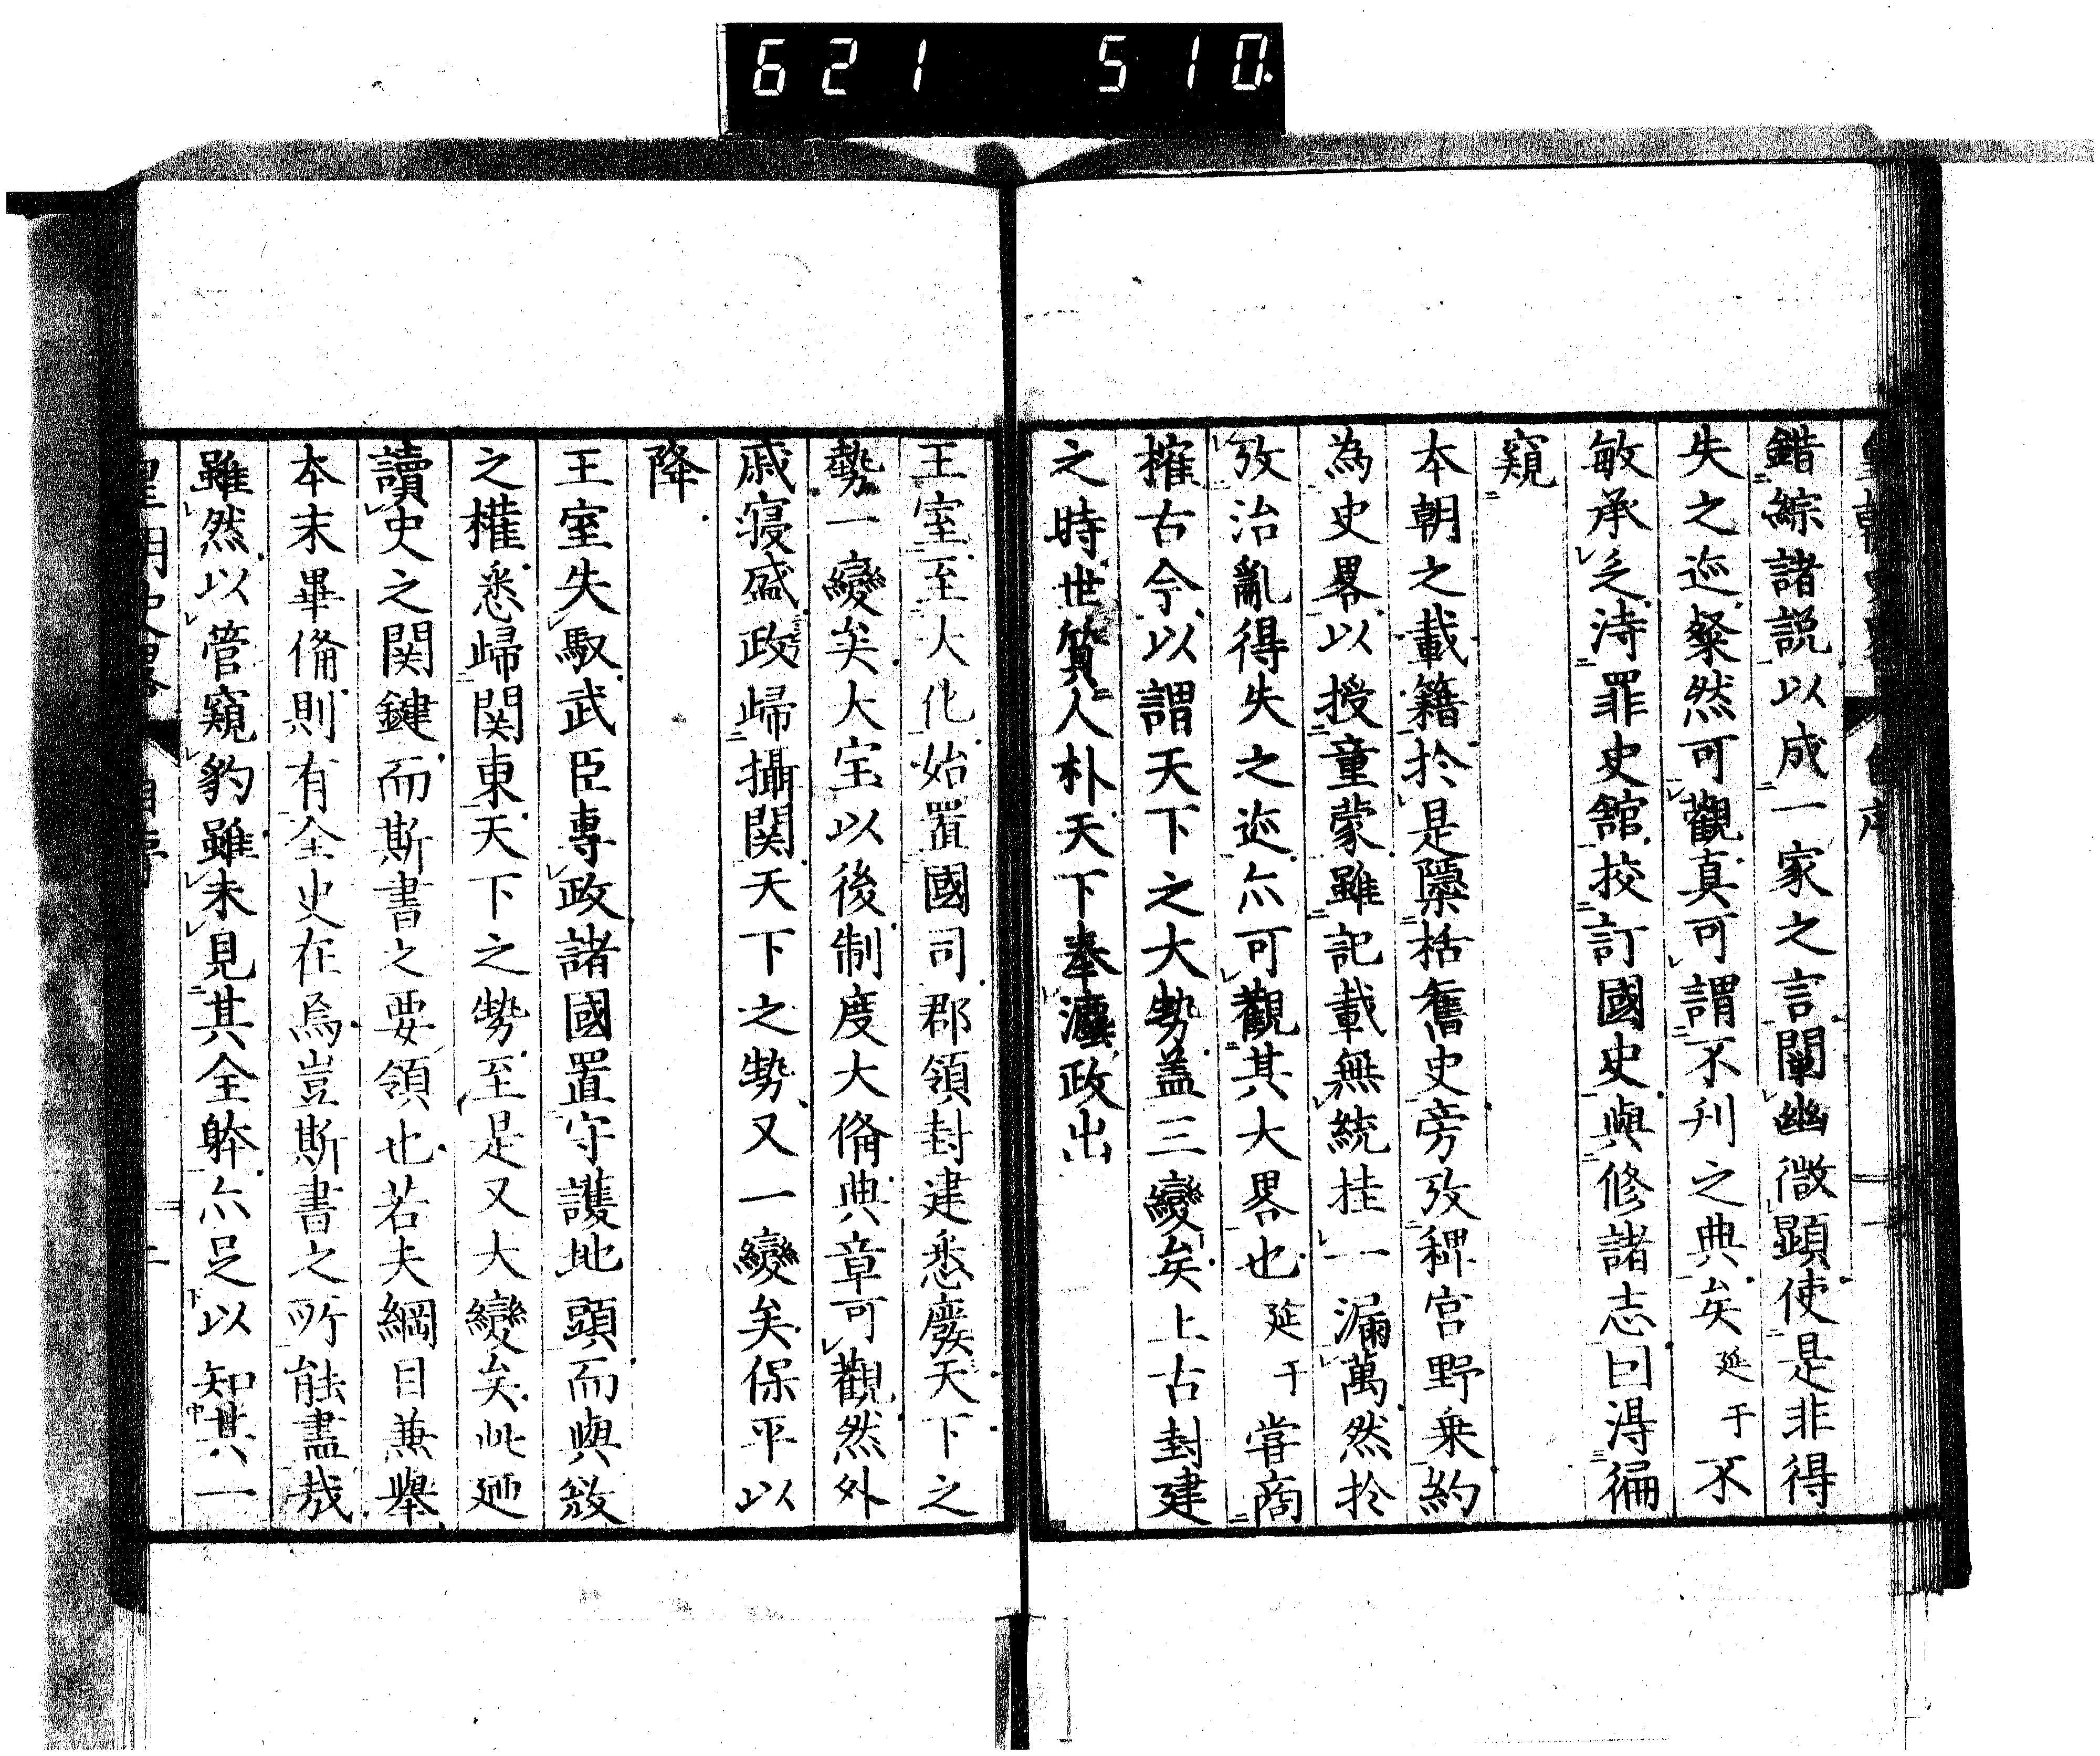 621 510
錯綜諸説以成一家之言闡幽微顯使是非得
失之迹粲然可觀真可謂不刋之典矣延于不
敏承乏待罪史館挍訂國史與修諸志曰得徧
窺
本朝之載籍於是檃栝舊史旁攷稗官野乗約
為史畧以授童蒙雖記載無統挂一漏萬然於
攷治亂得失之迹亦可觀其大畧也延于嘗商
榷古今以謂天下之大勢蓋三變矣上古封建
之時世質人朴天下奉瀍政出
王室至大化始置國司郡領封建悉廢天下之
勢一變矣大宝以後制度大備典章可觀然外
戚寖盛政歸攝関天下之勢又一變矣保平以
降
王室失馭武臣專政諸國置守護地頭而與敓
之權悉歸関東天下之勢至是又大變矣此廼
讀史之関鍵而斯書之要領也若夫綱目兼舉
本末畢備則有全史在焉豈斯書之所能盡哉
雖然以管窺豹雖未見其全躰亦足以知其一